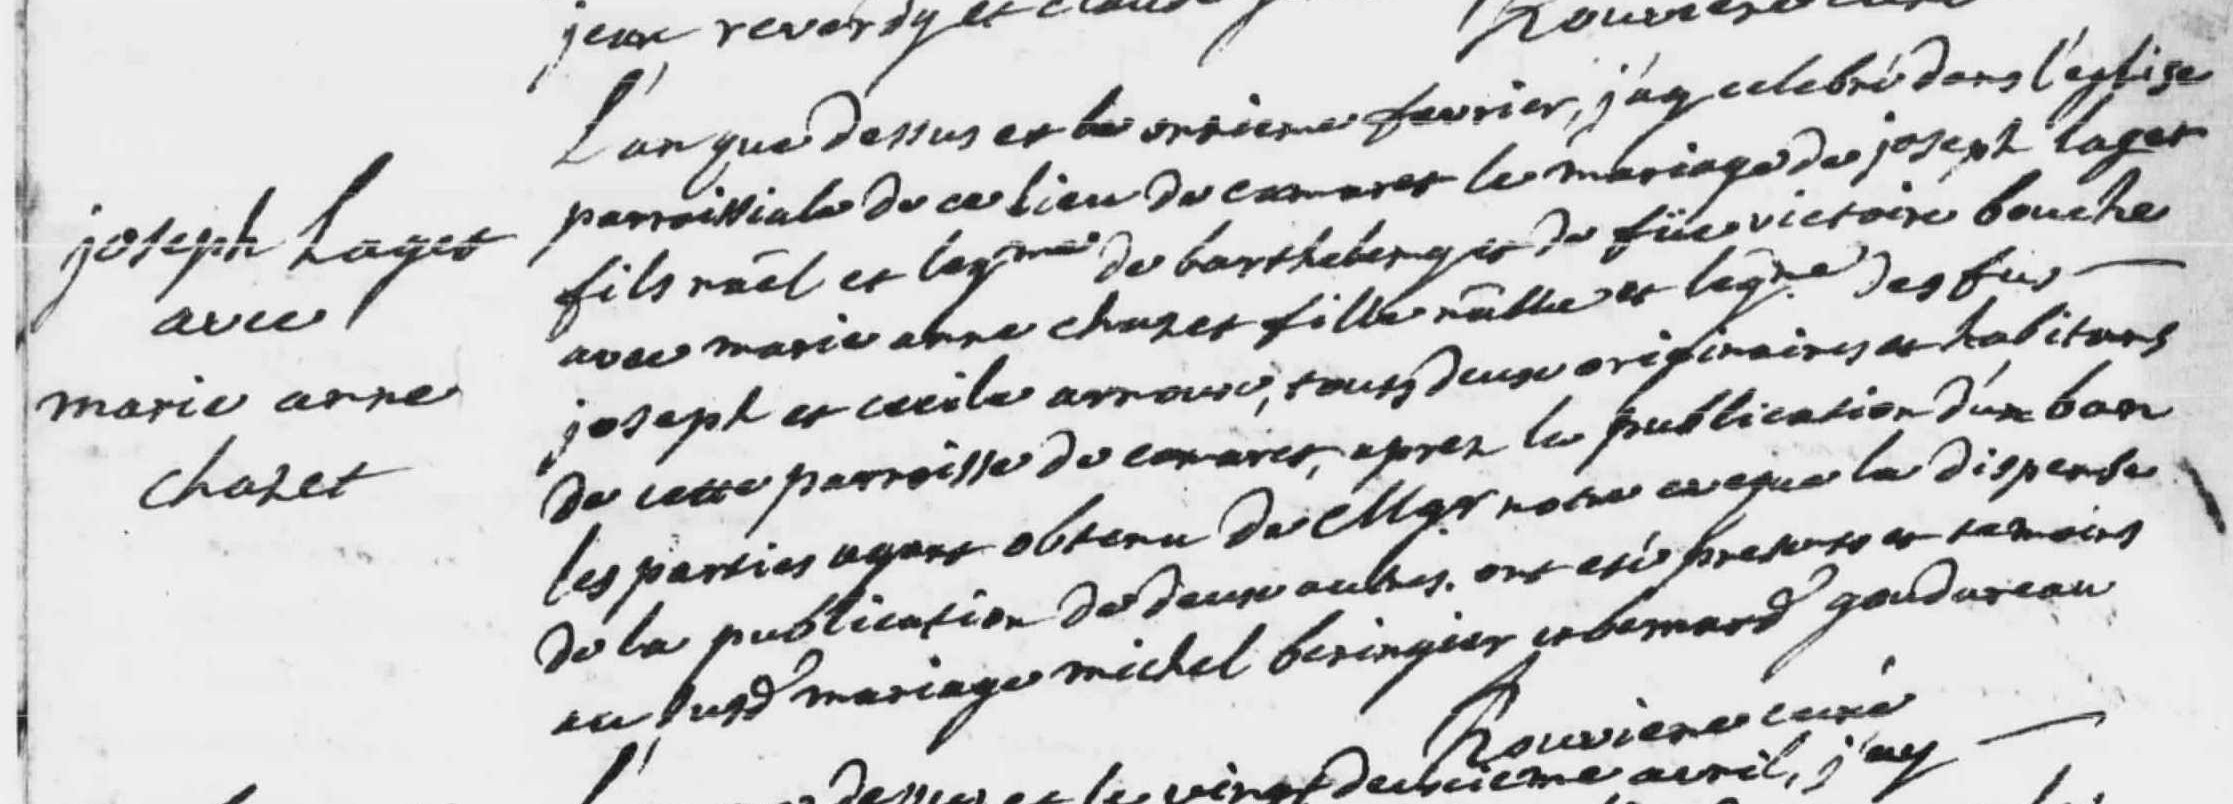 jean reverdy et claude
Rouviere curé
joseph Laget
avec
marie anne
chazet
L'an que dessus et le onzieme fevrier, j'ay celebré dans l'eglise
parroissiale de ce lieu de camaret le mariage de joseph laget
fils nâel et legme de barthelemy et de füe victoire bouche
avec marie anne chazet fille nâlle et legme des fus
joseph et cecile arnoux, touts deux originaires et habitans
de cette parroisse de camaret, aprez la publication d'un ban
les parties ayant obtenu de Mgr notre eveque la dispense
de la publication de deux autres. ont eté presents et temoins
au susd mariage michel beringier et bernard goudareau
Rouviere curé
dessus et le vingt deuxieme avril, j'ay